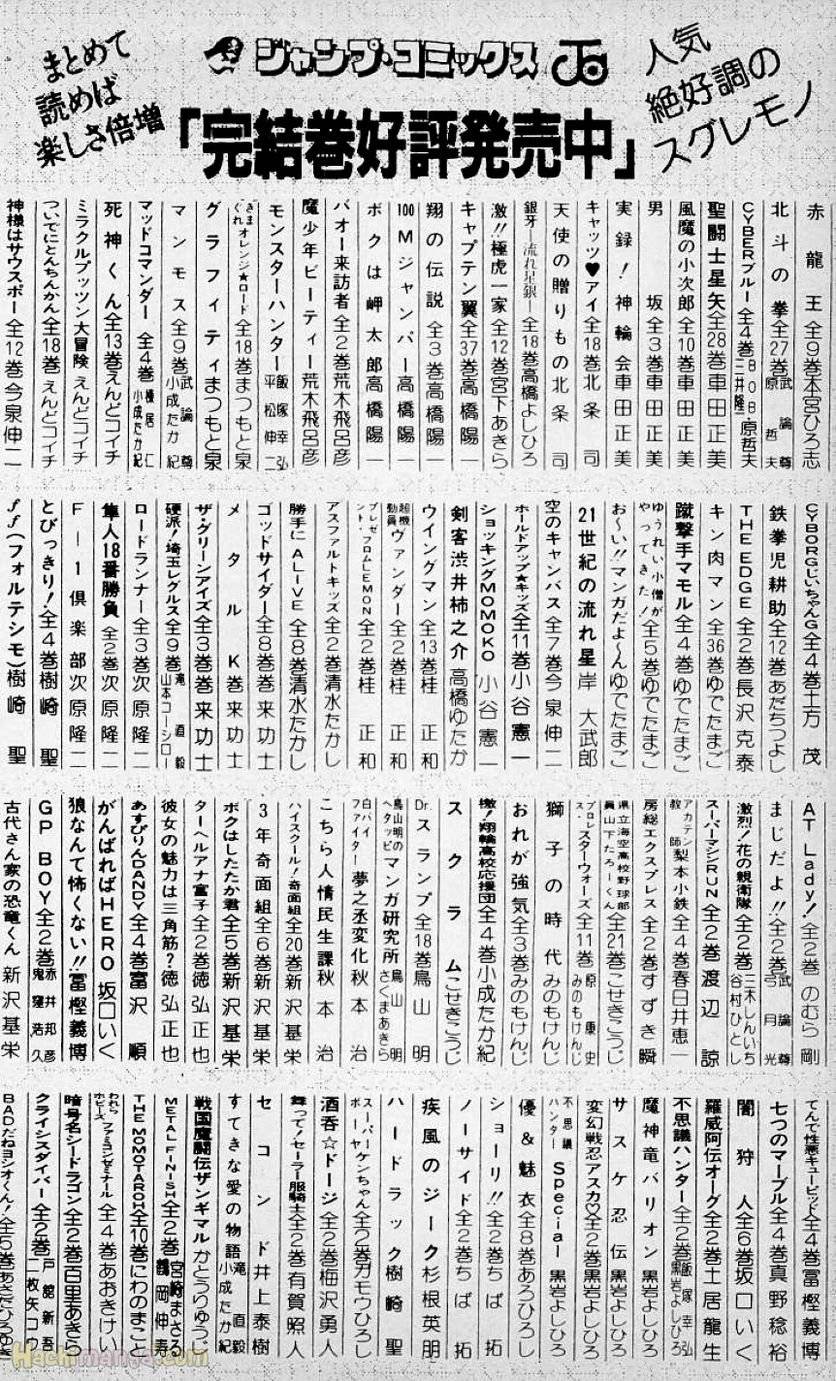 まとめて
読めば
楽しさ倍増
ジャンプ・コミックス
人気
絶好調の
スグレモノ
「完結巻好評発売中」
赤龍王 全9巻 本宮ひろ志
北斗の拳 全27巻 武論尊 原哲夫
CYBERブルー 全4巻 BOB・原哲夫 三井隆一
聖闘士星矢 全28巻 車田正美
風魔の小次郎 全10巻 車田正美
男坂 全3巻 車田正美
実録!神輪会 車田正美
キャッツ♥アイ 全18巻 北条司
天使の贈りもの 北条司
銀牙―流れ星銀― 全18巻 高橋よしひろ
激!!極虎一家 全12巻 宮下あきら
キャプテン翼 全37巻 高橋陽一
翔の伝説 全3巻 高橋陽一
100Mジャンパー 高橋陽一
ボクは岬太郎 高橋陽一
バオー来訪者 全2巻 荒木飛呂彦
魔少年ビーティー 荒木飛呂彦
モンスターハンター 飯塚幸弘 平松伸二
きまぐれオレンジ★ロード 全18巻 まつもと泉
グラフィティ まつもと泉
マンモス 全9巻 武論尊 小成たか紀
マッドコマンダー 全4巻 榛居仁 小成たか紀
死神くん 全13巻 えんどコイチ
ミラクルプッツン大冒険 えんどコイチ
ついでにとんちんかん 全18巻 えんどコイチ
神様はサウスポー 全12巻 今泉伸二
CYBORGじいちゃんG 全4巻 土方茂
鉄拳児耕助 全12巻 あだちつよし
THE EDGE 全2巻 長沢克泰
キン肉マン 全36巻 ゆでたまご
蹴撃手マモル 全4巻 ゆでたまご
ゆうれい小僧がやってきた! 全5巻 ゆでたまご
お〜い!!マンガだよ〜ん ゆでたまご
21世紀の流れ星 岸大武郎
空のキャンバス 全7巻 今泉伸二
ホールドアップ★キッズ 全11巻 小谷憲一
ショッキングMOMOKO 小谷憲一
剣客渋井柿之介 高橋ゆたか
ウイングマン 全13巻 桂正和
超機動員ヴァンダー 全2巻 桂正和
プレゼント・フロムLEMON 全2巻 桂正和
アスファルトキッズ 全2巻 清水たかし
勝手にALIVE 全8巻 清水たかし
ゴッドサイダー 全8巻 巻来功士
メタルK 巻来功士
ザ・グリーンアイズ 全3巻 巻来功士
硬派!埼玉レグルス 全9巻 滝直毅 山本コーシロー
ロードランナー 全3巻 次原隆二
隼人18番勝負 全2巻 次原隆二
F1倶楽部 次原隆二
とびっきり! 全4巻 樹崎聖
ff(フォルテシモ) 樹崎聖
AT Lady! 全2巻 のむら剛
まじだよ!! 全2巻 武論尊 弓月光
激烈!花の親衛隊 全2巻 三木しんいち 谷村ひとし
スーパーマシンRUN 全2巻 渡辺諒
アカテン教師梨本小鉄 全4巻 春日井恵一
房総エクスプレス 全2巻 すずき瞬
県立海空高校野球部員山下たろーくん 全21巻 こせきこうじ
プロレス・スターウォーズ 全11巻 原康史 みのもけんじ
獅子の時代 みのもけんじ
おれが強気 全3巻 みのもけんじ
檄!翔輪高校応援団 全4巻 小成たか紀
スクラム こせきこうじ
Dr.スランプ 全18巻 鳥山明
鳥山明のヘタッピマンガ研究所 鳥山明 さくまあきら
白バイファイター夢之丞変化 秋本治
こちら人情民生課 秋本治
ハイスクール!奇面組 全20巻 新沢基栄
3年奇面組 全6巻 新沢基栄
ボクはしたたか君 全5巻 新沢基栄
ターヘルアナ富子 全2巻 徳弘正也
彼女の魅力は三角筋? 徳弘正也
あすぴりんDANDY 全4巻 富沢順
がんばればHERO 坂口いく
狼なんて怖くない!! 冨樫義博
GP BOY 全2巻 赤井邦彦 鬼窪浩久
古代さん家の恐竜くん 新沢基栄
てんで性悪キューピッド 全4巻 冨樫義博
七つのマーブル 全4巻 真野稔裕
闇狩人 全6巻 坂口いく
羅威阿伝オーグ 全2巻 土居龍生
不思議ハンター 全2巻 飯塚幸弘 黒岩よしひろ
魔神竜バリオン 黒岩よしひろ
サスケ忍伝 黒岩よしひろ
変幻戦忍アスカ♡ 全2巻 黒岩よしひろ
不思議ハンターSpecial 黒岩よしひろ
優&魅衣 全8巻 あろひろし
ショーリ!! 全2巻 ちば拓
ノーサイド 全2巻 ちば拓
疾風のジーク 杉根英朋
ハードラック 樹崎聖
スーパーケンちゃんボーヤ 全2巻 ガモウひろし
酒呑☆ドージ 全2巻 梅沢勇人
舞って!セーラー服騎士 全2巻 有賀照人
セコンド 井上泰樹
すてきな愛の物語 滝直毅 小成たか紀
戦国魔闘伝ザンギマル かとうりゅうじ
METAL FINISH 全2巻 宮崎まさる 鶴岡伸寿
THE MOMOTAROH 全10巻 にわのまこと
おれらホビーズファミコンゼミナール 全4巻 あおきけい
暗号名シードラゴン 全2巻 百里あきら
クライシスダイバー 全2巻 戸舘新吾 二枚矢コウ
BADだねヨシオくん! 全5巻
Hachimanga.com